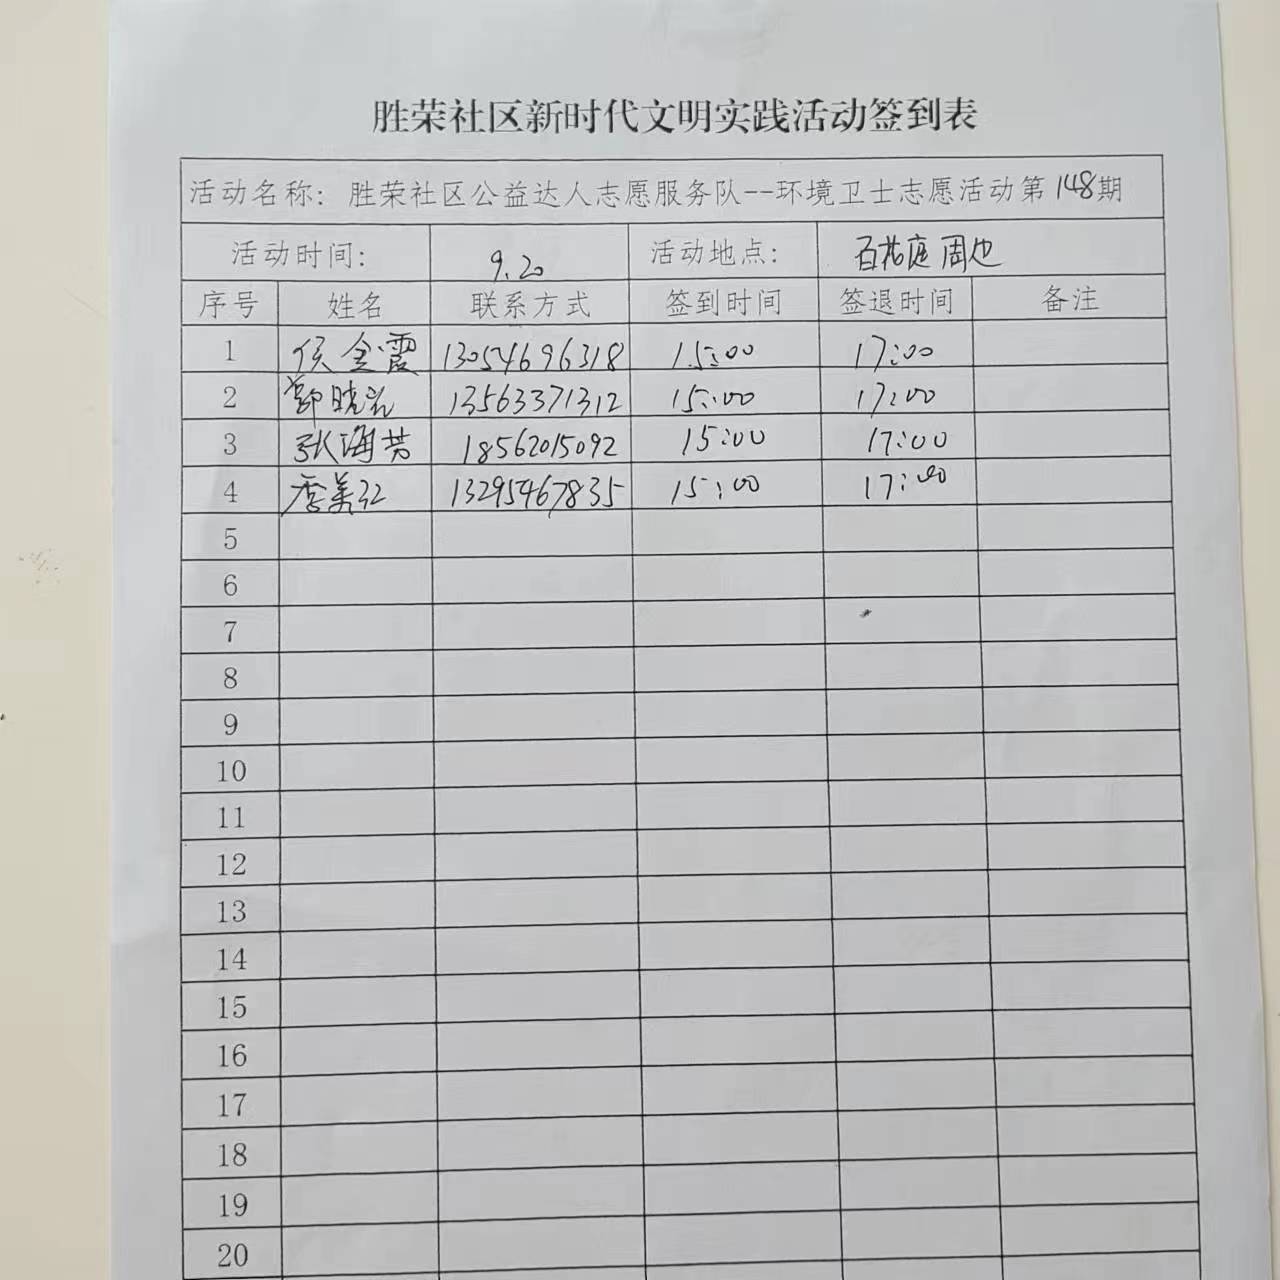 胜荣社区新时代文明实践活动签到表
活动名称: 胜荣社区公益达人志愿服务队--环境卫士志愿活动第148期
活动时间: 9.20 活动地点: 百花庭周边
序号 姓名 联系方式 签到时间 签退时间 备注
1 侯金霞 13054696318 15:00 17:00
2 郭晓 13563371312 15:00 17:00
3 张海芳 18562015092 15:00 17:00
4 季美红 13295467835 15:00 17:00
5
6
7
8
9
10
11
12
13
14
15
16
17
18
19
20